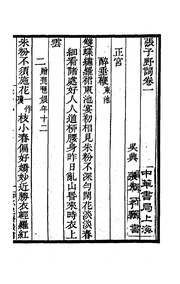 張子野詞卷一
中華書局上海
吳興
正宮
醉垂鞭 東池
雙蝶繡羅裙東池宴初相見朱粉不深勻閒花淡淡春
細看諸處好人人道柳腰身昨日亂山昏來時衣上
雲
二 贈琵琶娘年十二
朱粉不須施花枝小春偏好嬌妙近勝衣輕羅紅